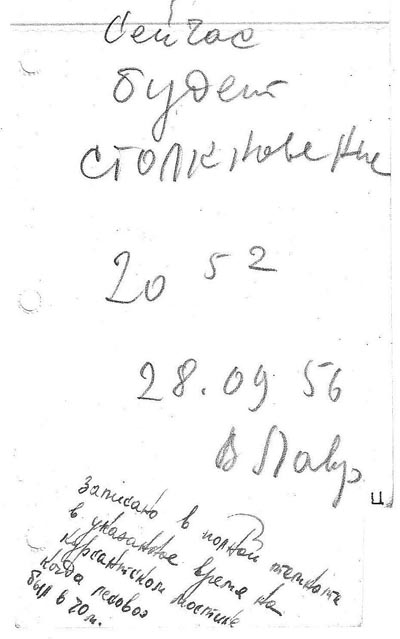 Сейчас
будет
столкновение
20 52
28.09 56
В Лавр
ц
Записано в полной темноте
в указанное время на
курсантском мостике
когда ледовоз
был в 70 м.